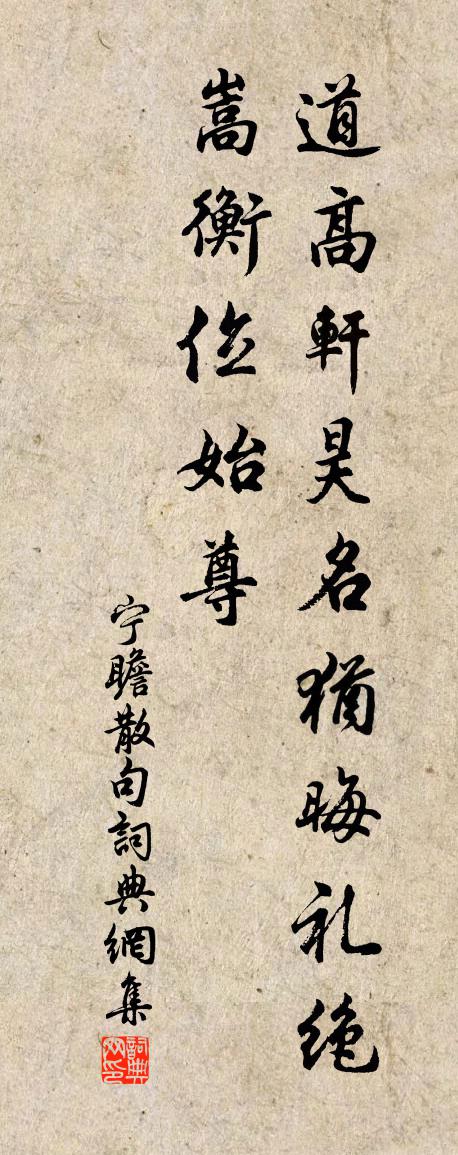 道高軒昊名猶晦礼绝
嵩衡位始尊
宁瞻散句詞典網集
詞典
网印